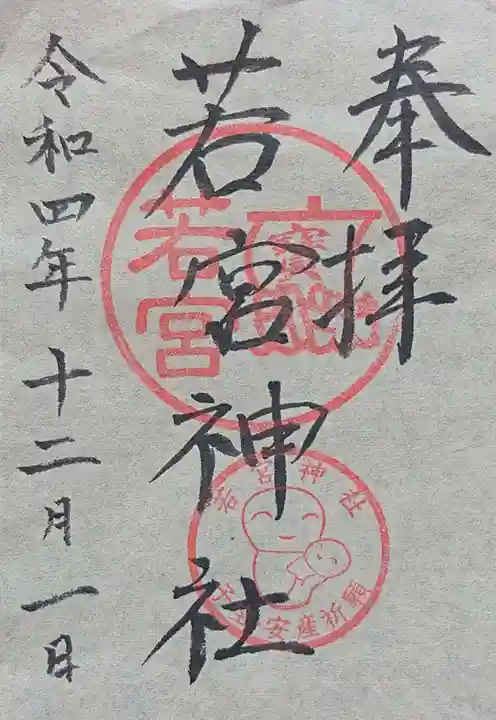 奉拝
若宮神社
令和四年十二月一日
若宮
若宮神社
安産祈願